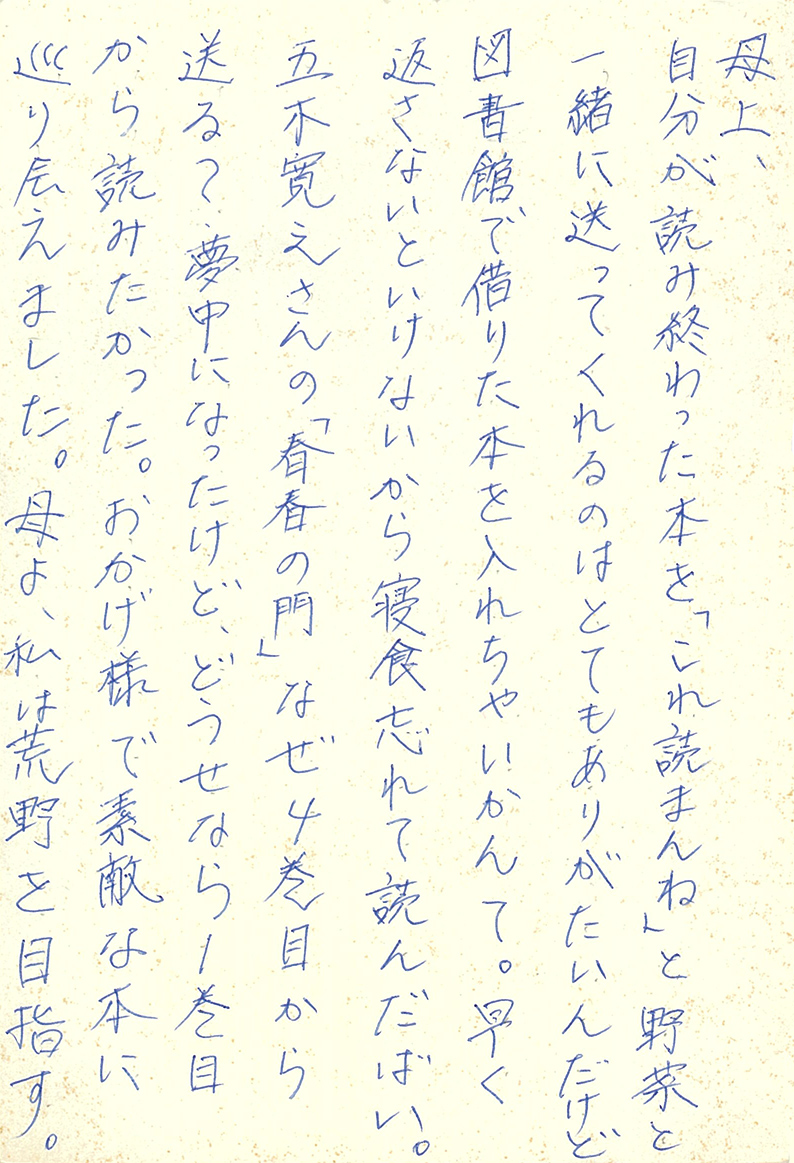 母上、
自分が読み終わった本を「これ読まんね」と野菜と
一緒に送ってくれるのはとてもありがたいんだけど
図書館で借りた本を入れちゃいかんて。早く
返さないといけないから寝食忘れて読んだばい。
五木寛えさんの「春春の門」なぜ4巻目から
送る？夢中になったけど、どうせなら1巻目
から読みたかった。おかげ様で素敵な本に
巡り会えました。母よ、私は荒野を目指す。